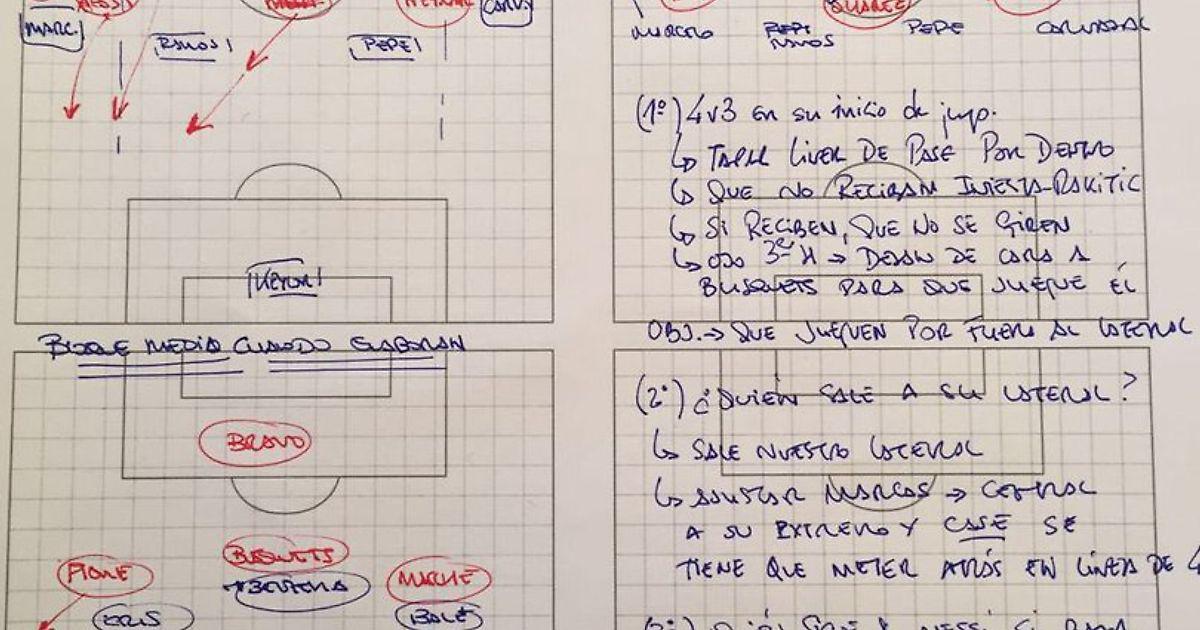 MESSI
NEYMAR
CARV.
MARC.
RAMOS
PEPE
KEYLOR
BLOQUE MEDIO CUANDO ELABORAN
BRAVO
PIQUE
BUSQUETS
BENZEMA
MATHIE
CRIS
BALE
SUAREZ
MARCELO
PEPE
RAMOS
PEPE
CARVAJAL
(1º) 4v3 en su inicio de jueg.
↳ TAPAR LINEA DE PASE POR DENTRO
↳ QUE NO RECIBAN INIESTA-RAKITIC
↳ SI RECIBEN, QUE NO SE GIREN
↳ OJO 3er H → DEJAN DE CARA A
BUSQUETS PARA QUE JUEGUE ÉL
OBJ. → QUE JUEGUEN POR FUERA AL LATERAL
(2º) ¿QUIÉN SALE A SU LATERAL?
↳ SALE NUESTRO LATERAL
↳ AJUSTAR MARCAS → CENTRAL
A SU EXTREMO Y CASE SE
TIENE QUE METER ATRÁS EN LÍNEA DE 4